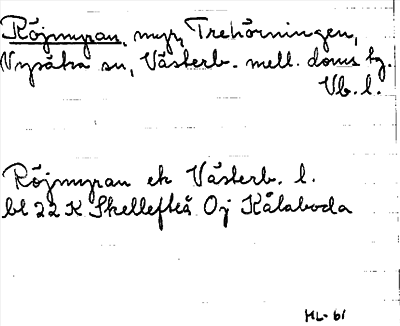 Röjmyran, myr, Trehörningen,
Nysätra sn, Västerb. mell. doms tg.
Vb. l.
Röjmyran ek Västerb. l.
bl 22 K Skellefteå Oj Kålaboda
HL-61